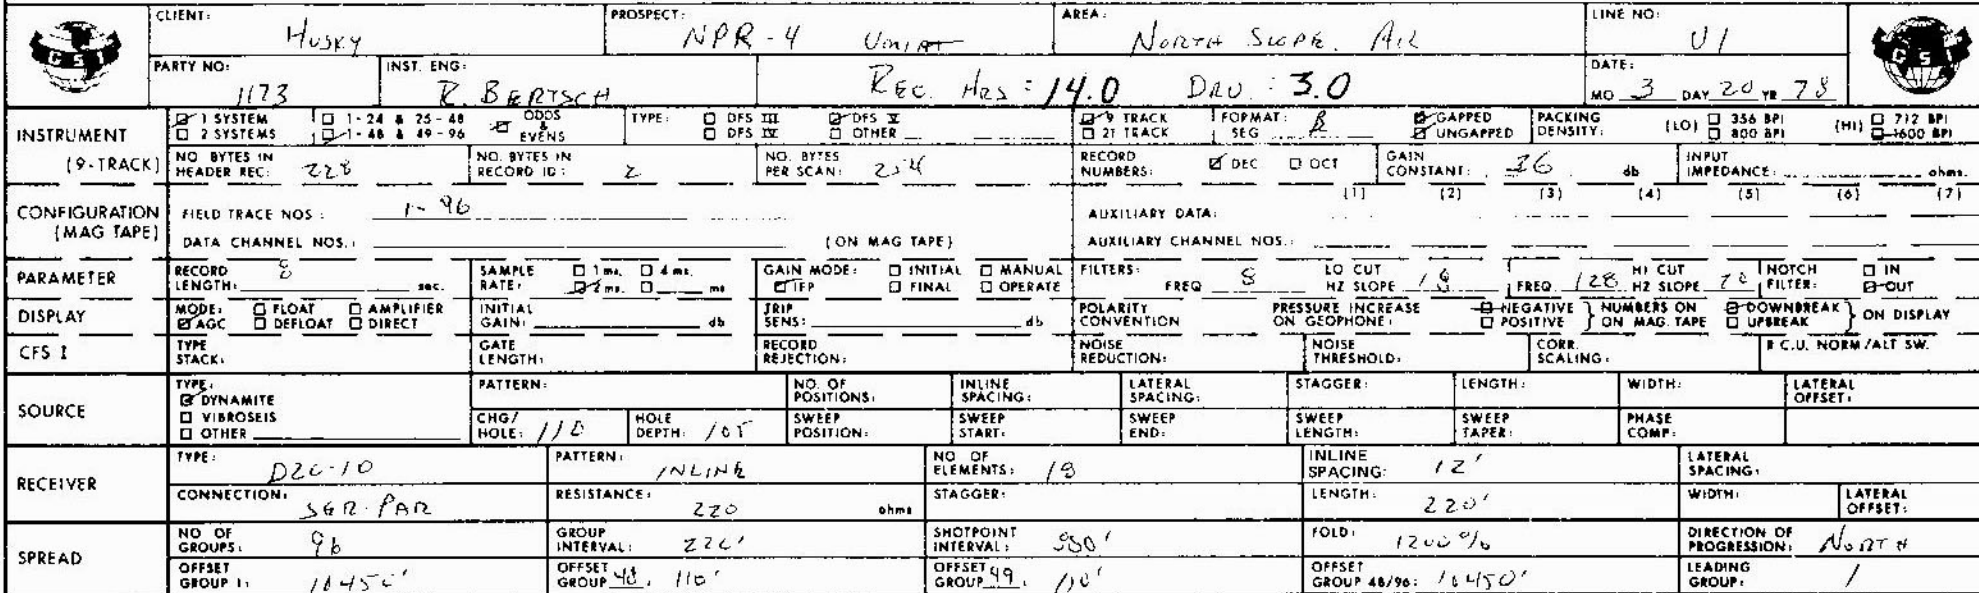 CLIENT: Husky PROSPECT: NPR-4 Umiat AREA: NORTH SLOPE. LINE NO: U1
GSI
PARTY NO: 1173 INST. ENG: R. BERTSCH REC. HRS = 14.0 DRV. : 3.0 DATE: MO 3 DAY 20 YR 78
INSTRUMENT (9-TRACK) 1 SYSTEM 1-24 & 25-48 ODDS & EVENS TYPE: DFS III DFS V 9 TRACK FORMAT: SEG B GAPPED PACKING DENSITY: (LO) 356 BPI (HI) 712 BPI
2 SYSTEMS 1-48 & 49-96 DFS IV OTHER 21 TRACK UNGAPPED 800 BPI 1600 BPI
NO. BYTES IN HEADER REC: 228 NO. BYTES IN RECORD ID: 2 NO. BYTES PER SCAN: 254 RECORD NUMBERS: DEC OCT GAIN CONSTANT: 36 db INPUT IMPEDANCE: ohms.
CONFIGURATION (MAG TAPE) FIELD TRACE NOS: 1-96 AUXILIARY DATA: (1) (2) (3) (4) (5) (6) (7)
DATA CHANNEL NOS.: (ON MAG TAPE) AUXILIARY CHANNEL NOS.:
PARAMETER RECORD LENGTH: 8 sec. SAMPLE RATE: 1 ms. 4 ms. 2 ms. ms GAIN MODE: INITIAL MANUAL IFP FINAL OPERATE FILTERS: FREQ 8 LO CUT HZ SLOPE 18 FREQ 128 HI CUT HZ SLOPE 70 NOTCH FILTER: IN OUT
DISPLAY MODE: FLOAT AMPLIFIER AGC DEFLOAT DIRECT INITIAL GAIN: db TRIP SENS: db POLARITY CONVENTION PRESSURE INCREASE ON GEOPHONE: NEGATIVE POSITIVE NUMBERS ON ON MAG. TAPE DOWNBREAK UPBREAK ON DISPLAY
CFS I TYPE STACK: GATE LENGTH: RECORD REJECTION: NOISE REDUCTION: NOISE THRESHOLD: CORR. SCALING: R.C.U. NORM/ALT SW.
SOURCE TYPE: DYNAMITE VIBROSEIS OTHER PATTERN: NO. OF POSITIONS: INLINE SPACING: LATERAL SPACING: STAGGER: LENGTH: WIDTH: LATERAL OFFSET:
CHG/HOLE: 110 HOLE DEPTH: 105 SWEEP POSITION: SWEEP START: SWEEP END: SWEEP LENGTH: SWEEP TAPER: PHASE COMP:
RECEIVER TYPE: D2C-10 PATTERN: INLINE NO OF ELEMENTS: 18 INLINE SPACING: 12' LATERAL SPACING:
CONNECTION: SER-PAR RESISTANCE: 220 ohms STAGGER: LENGTH: 220' WIDTH: LATERAL OFFSET:
SPREAD NO OF GROUPS: 96 GROUP INTERVAL: 220' SHOTPOINT INTERVAL: FOLD: 1200% DIRECTION OF PROGRESSION: NORTH
OFFSET GROUP 1: 10450' OFFSET GROUP 48: 110' OFFSET GROUP 49: 110' OFFSET GROUP 48/96: 10450' LEADING GROUP: 1